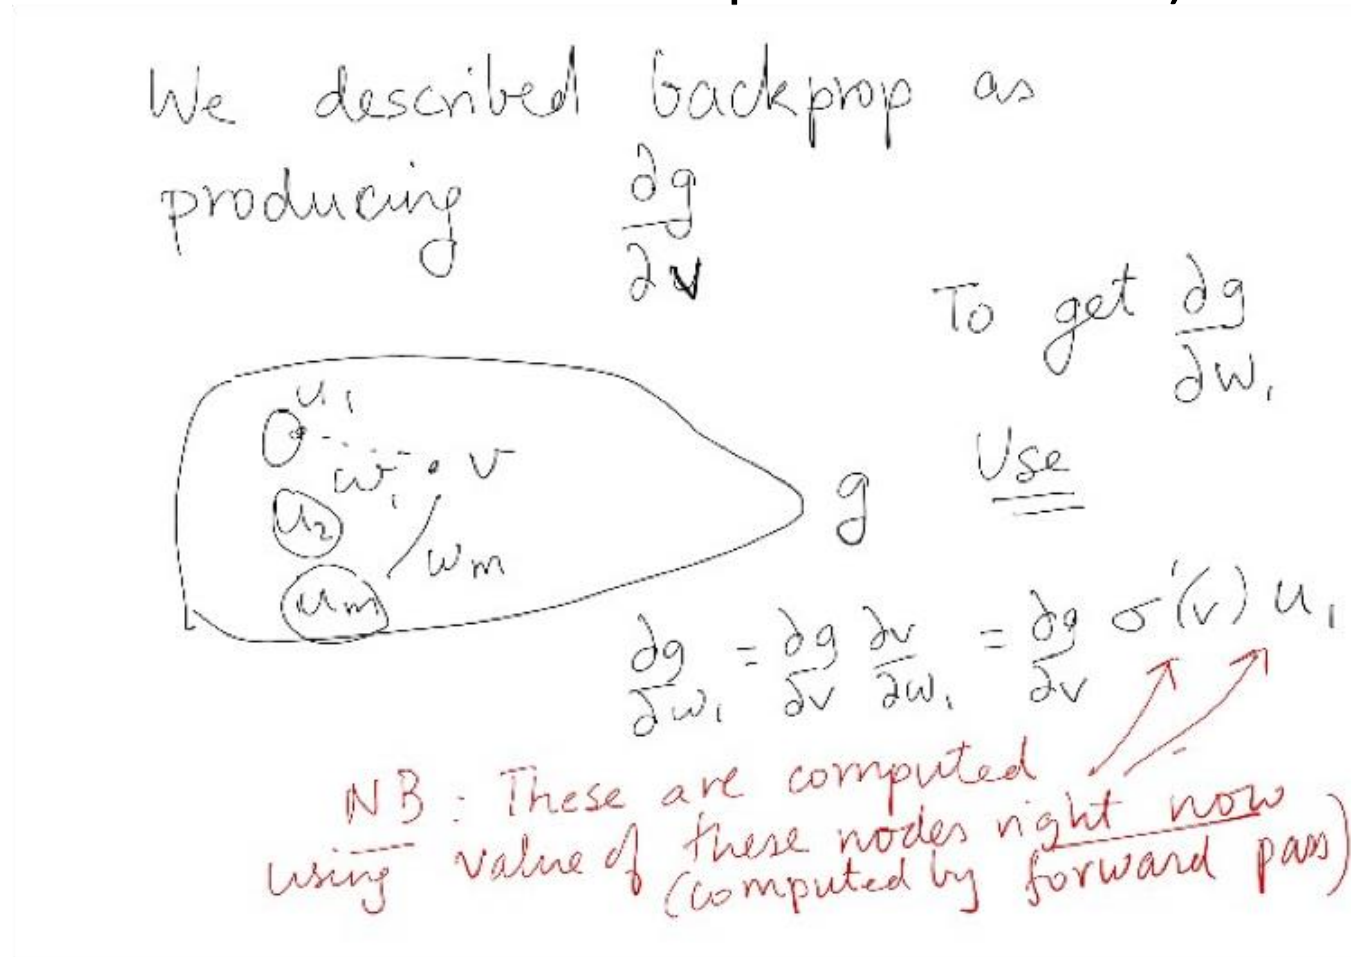 We described backprop as
producing ∂g/∂v
To get ∂g/∂w₁
u₁
w₁ v
u₂
wₘ
uₘ
g
Use
∂g/∂w₁ = ∂g/∂v ∂v/∂w₁ = ∂g/∂v σ'(v) u₁
NB: These are computed
using value of these nodes right now
(computed by forward pass)